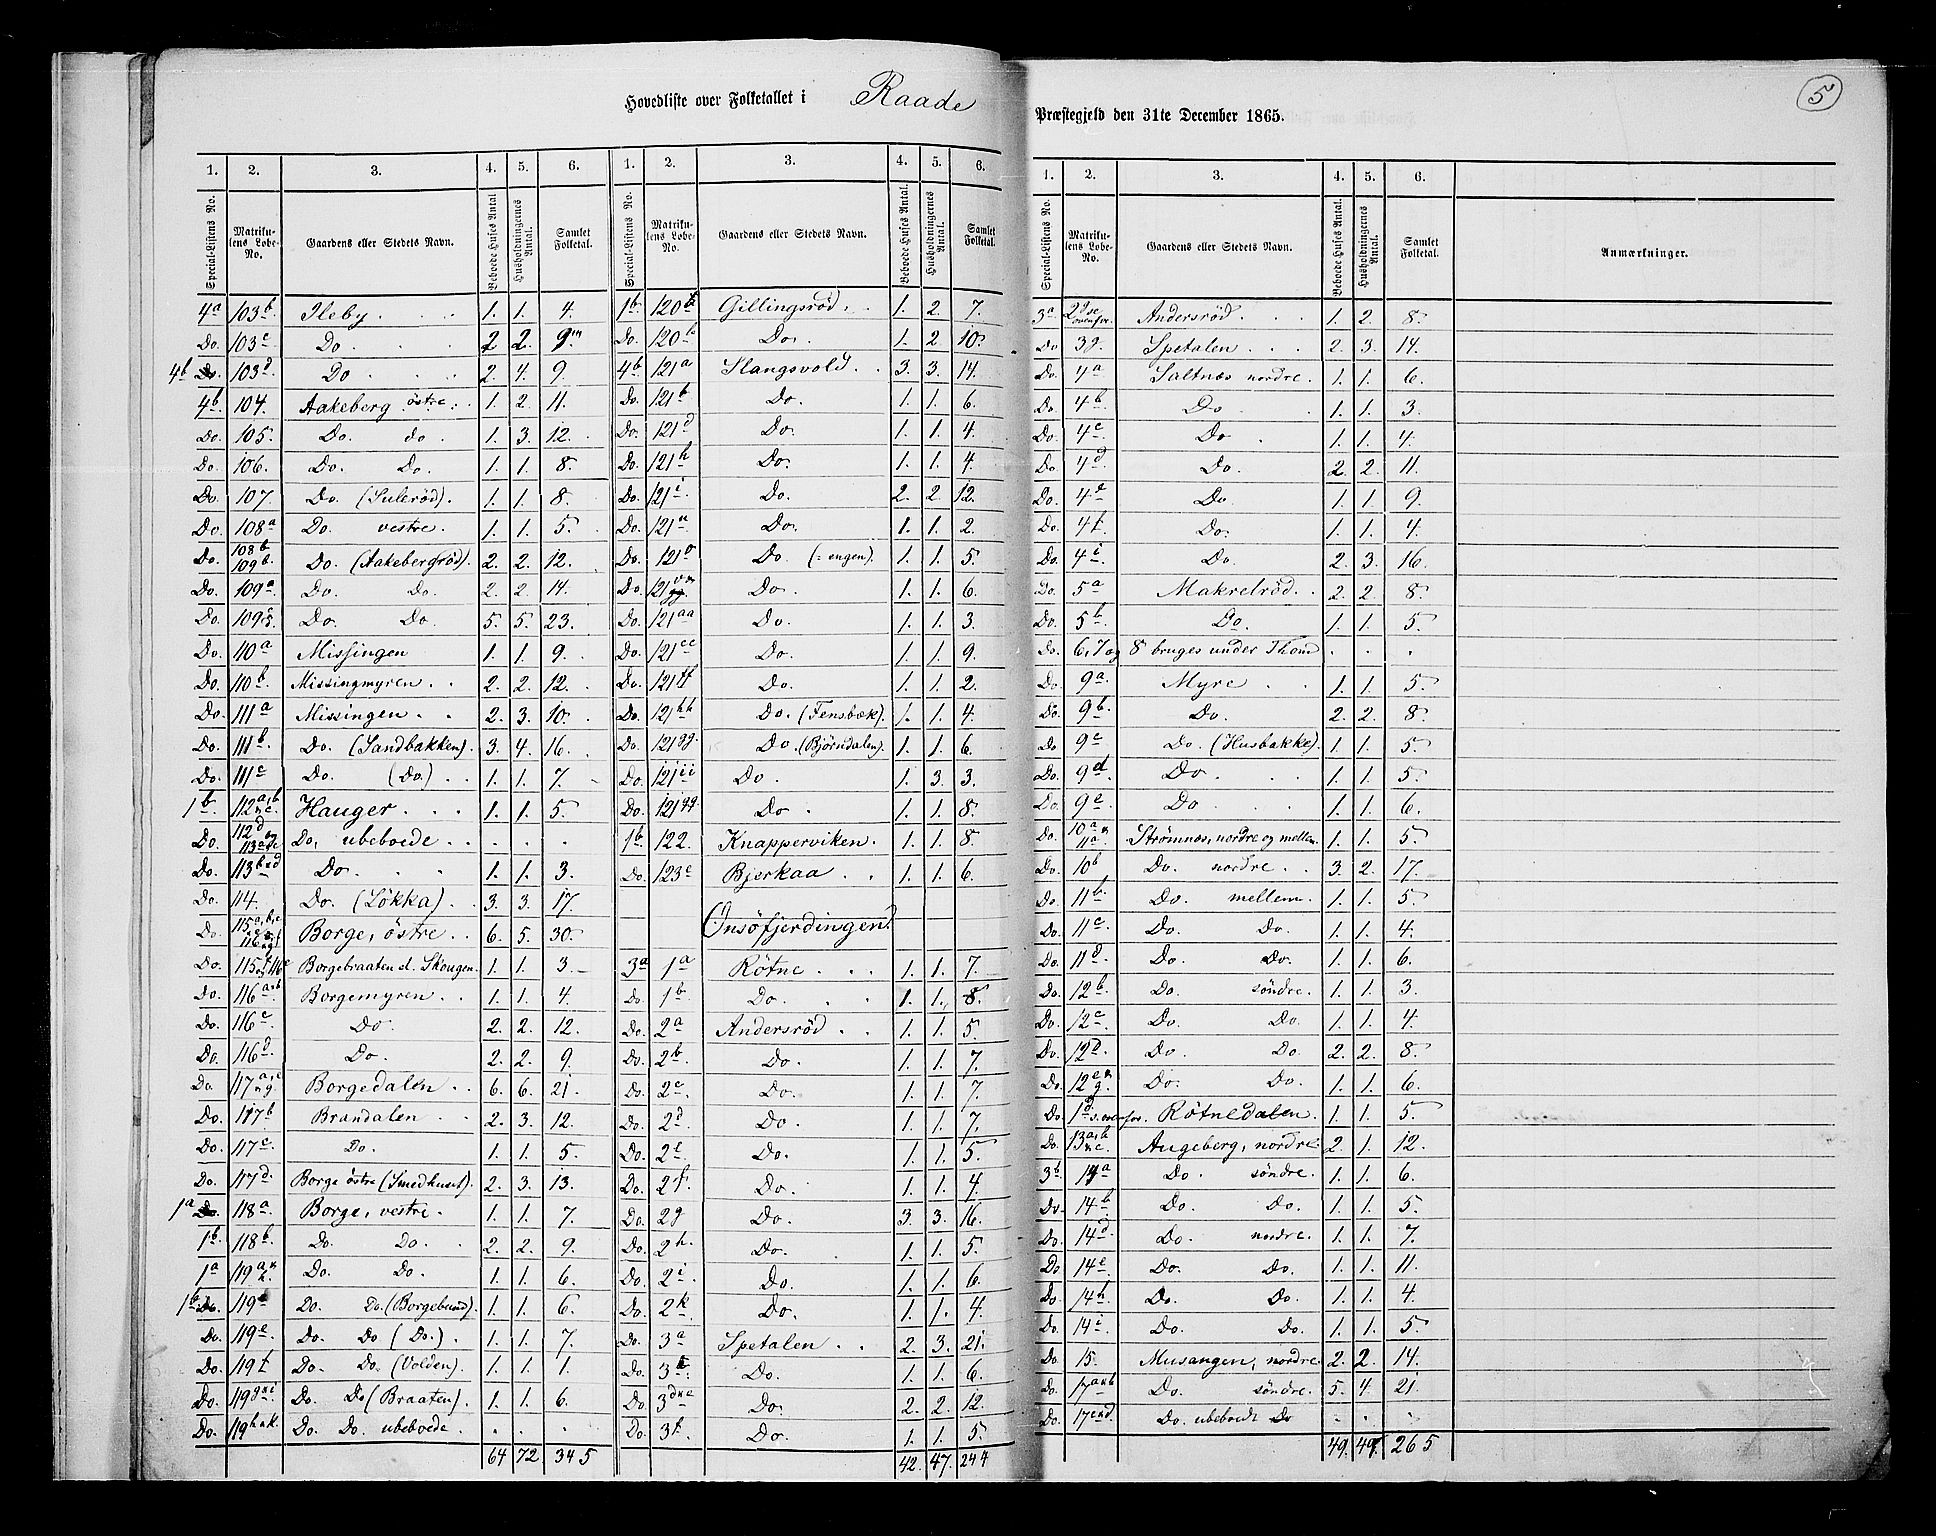 5
Hovedliste over Folketallet i Raade Præstegjeld den 31te December 1865.
1. 2. 3. 4. 5. 6. 1. 2. 3. 4. 5. 6.
Special-Listens No. Matrikulens Løbe-No. Gaardens eller Stedets Navn. Beboede Huses Antal Husholdningernes Antal. Samlet Folketal. Special-Listens No. Matrikulens Løbe-No. Gaardens eller Stedets Navn. Beboede Huses Antal. Husholdningernes Antal. Samlet Folketal.
4a 103b. Ileby. 1. 1. 4.
Do. 103c Do. 2 2. 9
4b 103d Do 2. 4. 9
4b. 104. Aakeberg östre. 1. 2. 11.
Do. 105. Do. do 1. 3. 12.
Do. 106. Do. Do. 1. 1. 8.
Do. 107 Do. (Sulerød). 1. 1. 8.
Do. 108a Do. vestre. 1. 1. 5.
Do. 108b 109b. Do (Aakebergrød). 2. 2. 12.
Do. 109a Do. Do. 2. 2. 14.
Do. 109c. Do. Do. 5. 5. 23.
Do. 110a Missingen 1. 1. 9.
Do. 110b. Missingmyren. 2. 2. 12.
Do. 111a Missingen. 2. 3. 10.
Do. 111b. Do. (Sandbakken). 3. 4. 16.
Do. 111c Do. (Do.) 1. 1. 7.
1b. 112a,b c. Hauger 1. 1. 5.
Do. 112d og 113a Do. ubeboede
Do. 113b d Do. 1. 1. 3.
Do. 114. Do. (Lökka). 3. 3. 17.
Do. 115a,b,c 116 Borge, östre. 6. 5. 30.
Do. 115 116c Borgebraaten el. Skougen. 1. 1. 3.
Do. 116a b Borgemyren. 1. 1. 4.
Do. 116c Do. 2. 2. 12.
Do. 116d Do. 2. 2. 9.
Do. 117a,c g. Borgedalen. 6. 6. 21.
Do. 117b Brandalen 2. 3. 12.
Do. 117c Do. 1. 1. 5.
Do. 117d. Borge östre (Smedhuset). 2. 3. 13.
1a 118a. Borge, vestre. 1. 1. 7.
1b. 118b. Do. Do. 2. 2. 9.
1a 119a h. Do. Do. 1. 1. 6.
1b 119 Do. Do. (Borgebund). 1. 1. 6.
Do. 119e. Do. Do (Do.) 1. 1. 7.
Do. 119f Do. Do. (Volden). 1. 1. 1.
Do. 119g i Do. Do (Braaten). 1. 1. 6.
Do. 119h k. Do. Do. ubeboede.
64 72 345
1b. 120 Gillingsrød. 1. 2. 7.
Do. 120b Do. 1. 2. 10.
4b. 121a Slangsvold. 3. 3. 14.
Do. 121b Do. 1. 1. 6.
Do. 121d Do. 1. 1. 4.
Do. 121h Do. 1. 1. 4.
Do. 121i Do. 2. 2. 12.
Do. 121 Do. 1. 1. 2.
Do. 121 Do (=engen). 1. 1. 5.
Do. 121 Do. 1. 1. 6.
Do. 121aa Do. 1. 1. 3.
Do. 121cc Do. 1. 1. 9.
Do. 121ff Do. 1. 1. 2.
Do. 121hh Do. (Fensbæk). 1. 1. 4.
Do. 121gg. Do. (Bjørndalen). 1. 1. 6.
Do. 121ii Do. 1. 3. 3.
Do. 121 Do. 1. 1. 8.
1b 122. Knapperviken. 1. 1. 8.
Do. 123c Bjerkaa 1. 1. 6.
Onsöfjerdingen.
3a 1a Rötne 1. 1. 7.
Do. 1b. Do. 1. 1. 8.
Do. 2a Andersröd 1. 1. 5.
Do. 2b. Do. 1. 1. 7.
Do. 2c Do. 1. 1. 7
Do. 2d Do. 1. 1. 7.
Do. 2e Do. 1. 1. 5.
Do. 2f. Do. 1. 1. 4.
Do. 2g Do. 3. 3. 16.
Do. 2h. Do. 1. 1. 5.
Do. 2i. Do. 1. 1. 6.
Do. 2k. Do. 1. 1. 4.
Do. 3a Spetalen 2. 3. 21.
Do. 3 Do. 1. 1. 6.
Do. 3d e Do. 2. 2. 12.
Do. 3f. Do. 1. 1. 5.
42. 47. 244
1. 2. 3. 4. 5. 6.
Special-Listens No. Matrikulens Løbe-No. Gaardens eller Stedets Navn. Beboede Huses Antal. Husholdningernes Antal. Samlet Folketal. Anmærkninger.
3a 2d se ovenfor. Andersröd 1. 2. 8.
Do 3g. Spetalen 2. 3. 14.
Do. 4a Saltnes nordre. 1. 1. 6.
Do. 4b Do 1. 1. 3.
Do. 4c Do 1. 1. 4.
Do. 4d Do. 2. 2. 11.
Do. 4e Do. 1. 1. 9.
Do. 4f. Do. 1. 1. 4.
Do. 4i Do. 2. 3. 16.
Do. 5a Makrelröd. 2. 2. 8.
Do. 5b Do. 1. 1. 5.
Do. 6, 7 og 8 bruges under Thom
Do. 9a. Myre 1. 1. 5.
Do. 9b. Do. 2. 2. 8.
Do 9c Do. (Husbakke). 1. 1. 5.
Do. 9d. Do. 1. 1. 5.
Do. 9e Do 1. 1. 6.
Do. 10a 11a Strømnes, nordre og mellem. 1. 1. 5.
Do. 10b Do. nordre. 3. 2. 17.
Do. 11b. Do. mellem. 1. 1. 5.
Do. 11c. Do. Do. 1. 1. 4.
Do. 11d Do. Do. 1. 1. 6.
Do. 12b. Do. söndre. 1. 1. 3.
Do. 12c Do. Do. 1. 1. 4.
Do. 12d Do. Do. 2. 2. 8.
Do. 12e g. Do. Do. 1. 1. 6.
Do. 1d s. ovenfor. Rötnedalen. 1. 1. 5.
Do. 13a,b c. Augeberg, nordre. 2. 1. 12.
3b 14a Do. söndre. 1. 1. 6.
Do. 14b. Do. Do. 1. 1. 5.
Do. 14d Do. nordre. 1. 1. 7.
Do 14e Do. Do. 1. 1. 11.
Do. 14h Do. Do. 1. 1. 4.
Do. 14i Do. Do. 1. 1. 5.
Do. 15. Musangen, nordre. 2. 2. 14.
Do. 17a b Do. söndre. 5. 4. 21.
Do. 17c d. Do. ubeboede Do
49. 49. 265